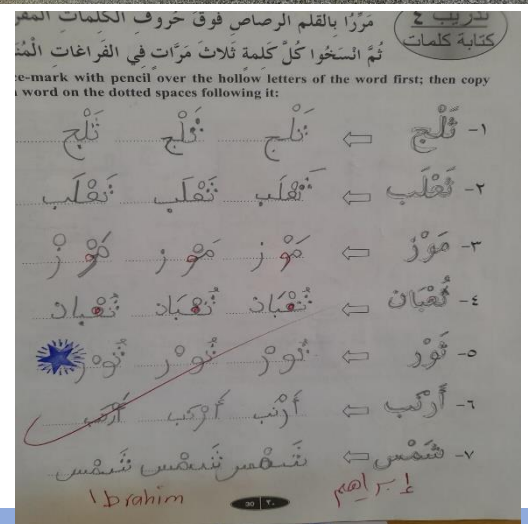 تدريب ٤
كتابة كلمات
مَرِّرًا بِالقَلَمِ الرصاصِ فَوْقَ حُروفِ الكَلِمَاتِ
ثُمَّ انْسَخُوا كُلَّ كَلِمَةٍ ثَلاثَ مَرَّاتٍ فِي الفَرَاغَاتِ
ce-mark with pencil over the hollow letters of the word first; then copy
word on the dotted spaces following it:
١- ثَلْج ⇦ ثَلْج ثَلْج ثَلْج
٢- ثَعْلَب ⇦ ثَعْلَب ثَعْلَب ثَعْلَب
٣- مَوْز ⇦ مَوْز مَوْز مَوْز
٤- ثُعْبَان ⇦ ثُعْبَان ثُعْبَان ثُعْبَان
٥- ثَوْر ⇦ ثَوْر ثَوْر ثَوْر
٦- أَرْنَب ⇦ أَرْنَب
٧- شَمْس ⇦ شَمْس شَمْس شَمْس
إبراهيم
Ibrahim
30 ٣٠